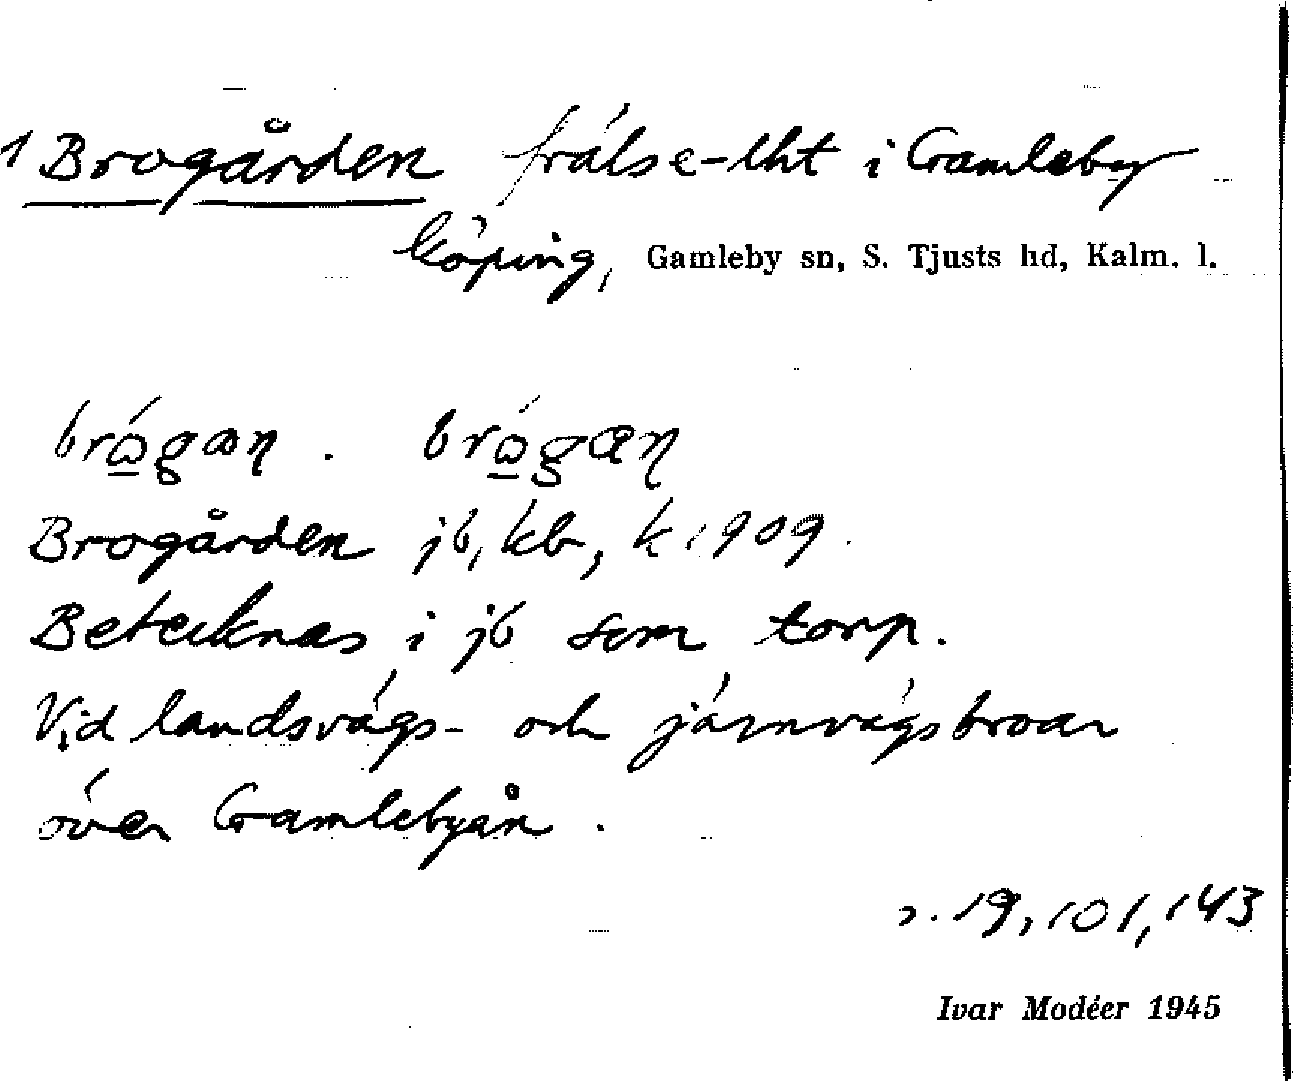 1 Brogården frälse-lht i Gamleby
köping, Gamleby sn, S. Tjusts hd, Kalm. l.
Brogården jb, kb, k 1909.
Betecknas i jb som torp.
Vid landsvägs- och järnvägsbroar
över Gamlebyån.
s. 19, 101, 143
Ivar Modéer 1945